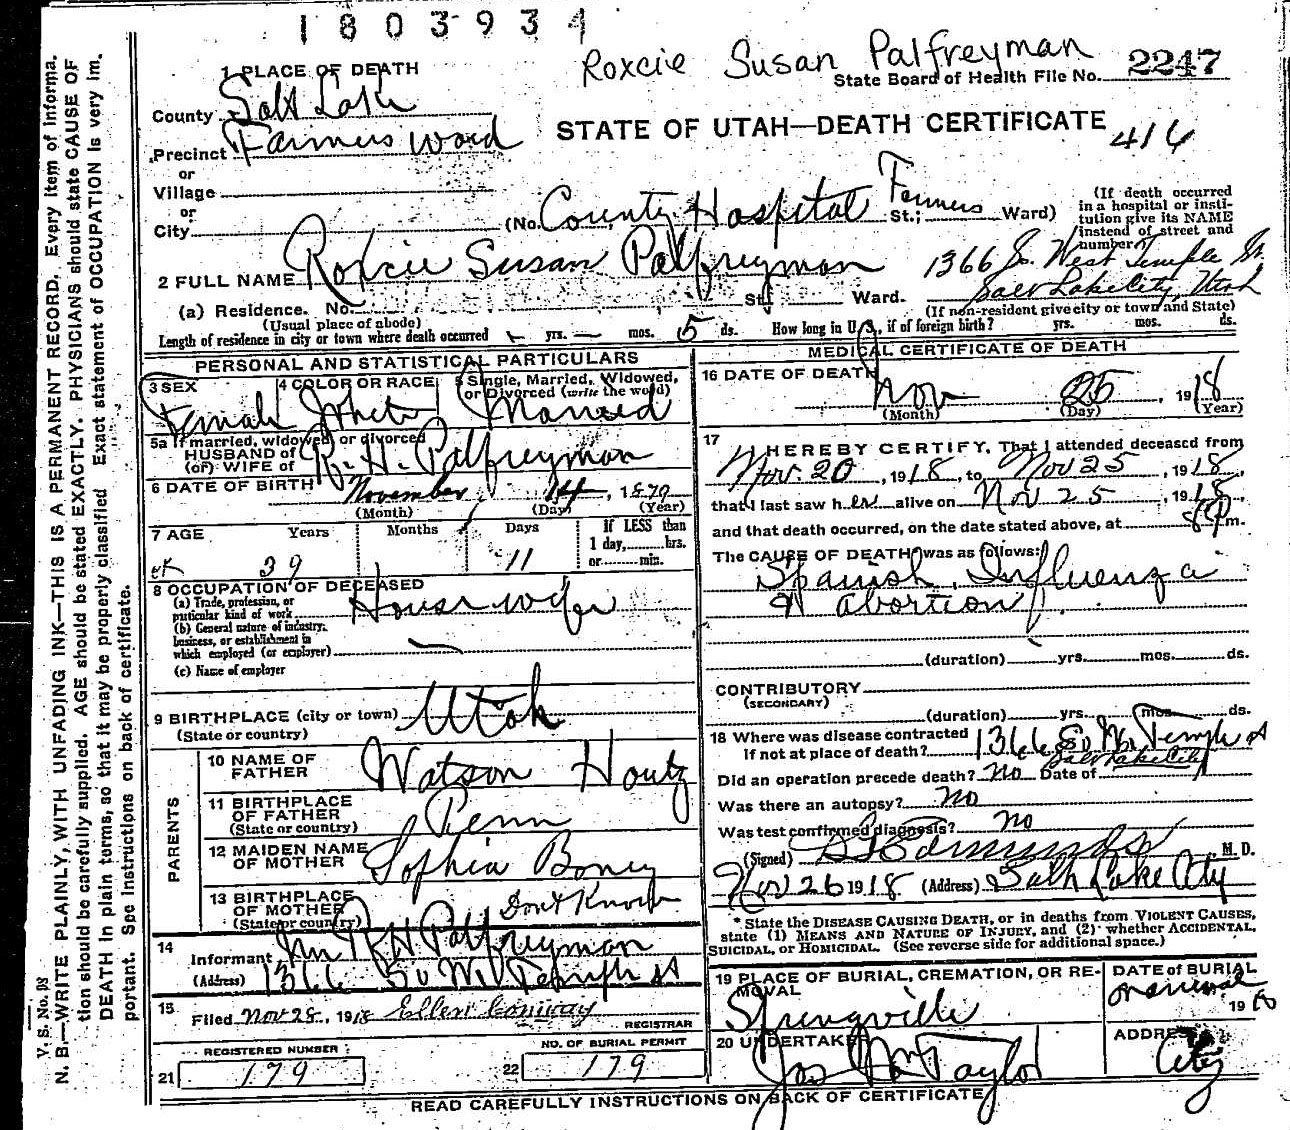 1803934
Roxcie Susan Palfreyman
State Board of Health File No. 2247
1 PLACE OF DEATH
County Salt Lake
STATE OF UTAH—DEATH CERTIFICATE
416
Precinct Farmers Ward
or
Village
or
City (No. County Hospital St.; Farmers Ward)
(If death occurred in a hospital or insti-
tution give its NAME
instead of street and
number)
2 FULL NAME Roxcie Susan Palfreyman
1366 So. West Temple St.
(a) Residence. No. St. Ward. Salt Lake City, Utah
(Usual place of abode) (If non-resident give city or town and State)
Length of residence in city or town where death occurred — yrs. — mos. 5 ds. How long in U.S., if of foreign birth? yrs. mos. ds.
PERSONAL AND STATISTICAL PARTICULARS
3 SEX 4 COLOR OR RACE 5 Single, Married, Widowed,
or Divorced (write the word)
Female White Married
5a If married, widowed, or divorced
HUSBAND of
(or) WIFE of R. H. Palfreyman
6 DATE OF BIRTH November 14, 1879
(Month) (Day) (Year)
7 AGE Years Months Days If LESS than
1 day, hrs.
or min.
39 11
8 OCCUPATION OF DECEASED
(a) Trade, profession, or
particular kind of work Housewife
(b) General nature of industry,
business, or establishment in
which employed (or employer) —
(c) Name of employer
9 BIRTHPLACE (city or town) Utah
(State or country)
PARENTS
10 NAME OF
FATHER Watson Houtz
11 BIRTHPLACE
OF FATHER Penn
(State or country)
12 MAIDEN NAME
OF MOTHER Sophia Boney
13 BIRTHPLACE
OF MOTHER Dont Know
(State or country)
14
Informant R H Palfreyman
(Address) 1366 So W. Temple St
15
Filed Nov 28, 1918 Ellen Conway
REGISTRAR
REGISTERED NUMBER
21 179
NO. OF BURIAL PERMIT
22 179
MEDICAL CERTIFICATE OF DEATH
16 DATE OF DEATH
Nov 25, 1918
(Month) (Day) (Year)
17
I HEREBY CERTIFY, That I attended deceased from
Nov. 20, 1918, to Nov 25, 1918,
that I last saw her alive on Nov 25, 1918,
and that death occurred, on the date stated above, at 8 P m.
The CAUSE OF DEATH was as follows:
Spanish Influenza
abortion
(duration) yrs. mos. ds.
CONTRIBUTORY
(SECONDARY)
(duration) yrs. mos. ds.
18 Where was disease contracted
if not at place of death? 1366 So W. Temple St
Salt Lake City
Did an operation precede death? No Date of
Was there an autopsy? No
Was test confirmed diagnosis? No
(Signed) Edmunds, M. D.
Nov 26 1918 (Address) Salt Lake City
* State the DISEASE CAUSING DEATH, or in deaths from VIOLENT CAUSES,
state (1) MEANS AND NATURE OF INJURY, and (2) whether ACCIDENTAL,
SUICIDAL, or HOMICIDAL. (See reverse side for additional space.)
19 PLACE OF BURIAL, CREMATION, OR RE-
MOVAL
Springville
DATE of BURIAL
191
20 UNDERTAKER
Jos Wm Taylor
ADDRESS
City
READ CAREFULLY INSTRUCTIONS ON BACK OF CERTIFICATE
V. S. No. 98
N. B.—WRITE PLAINLY, WITH UNFADING INK—THIS IS A PERMANENT RECORD. Every item of informa-
tion should be carefully supplied. AGE should be stated EXACTLY. PHYSICIANS should state CAUSE OF
DEATH in plain terms, so that it may be properly classified. Exact statement of OCCUPATION is very im-
portant. See instructions on back of certificate.